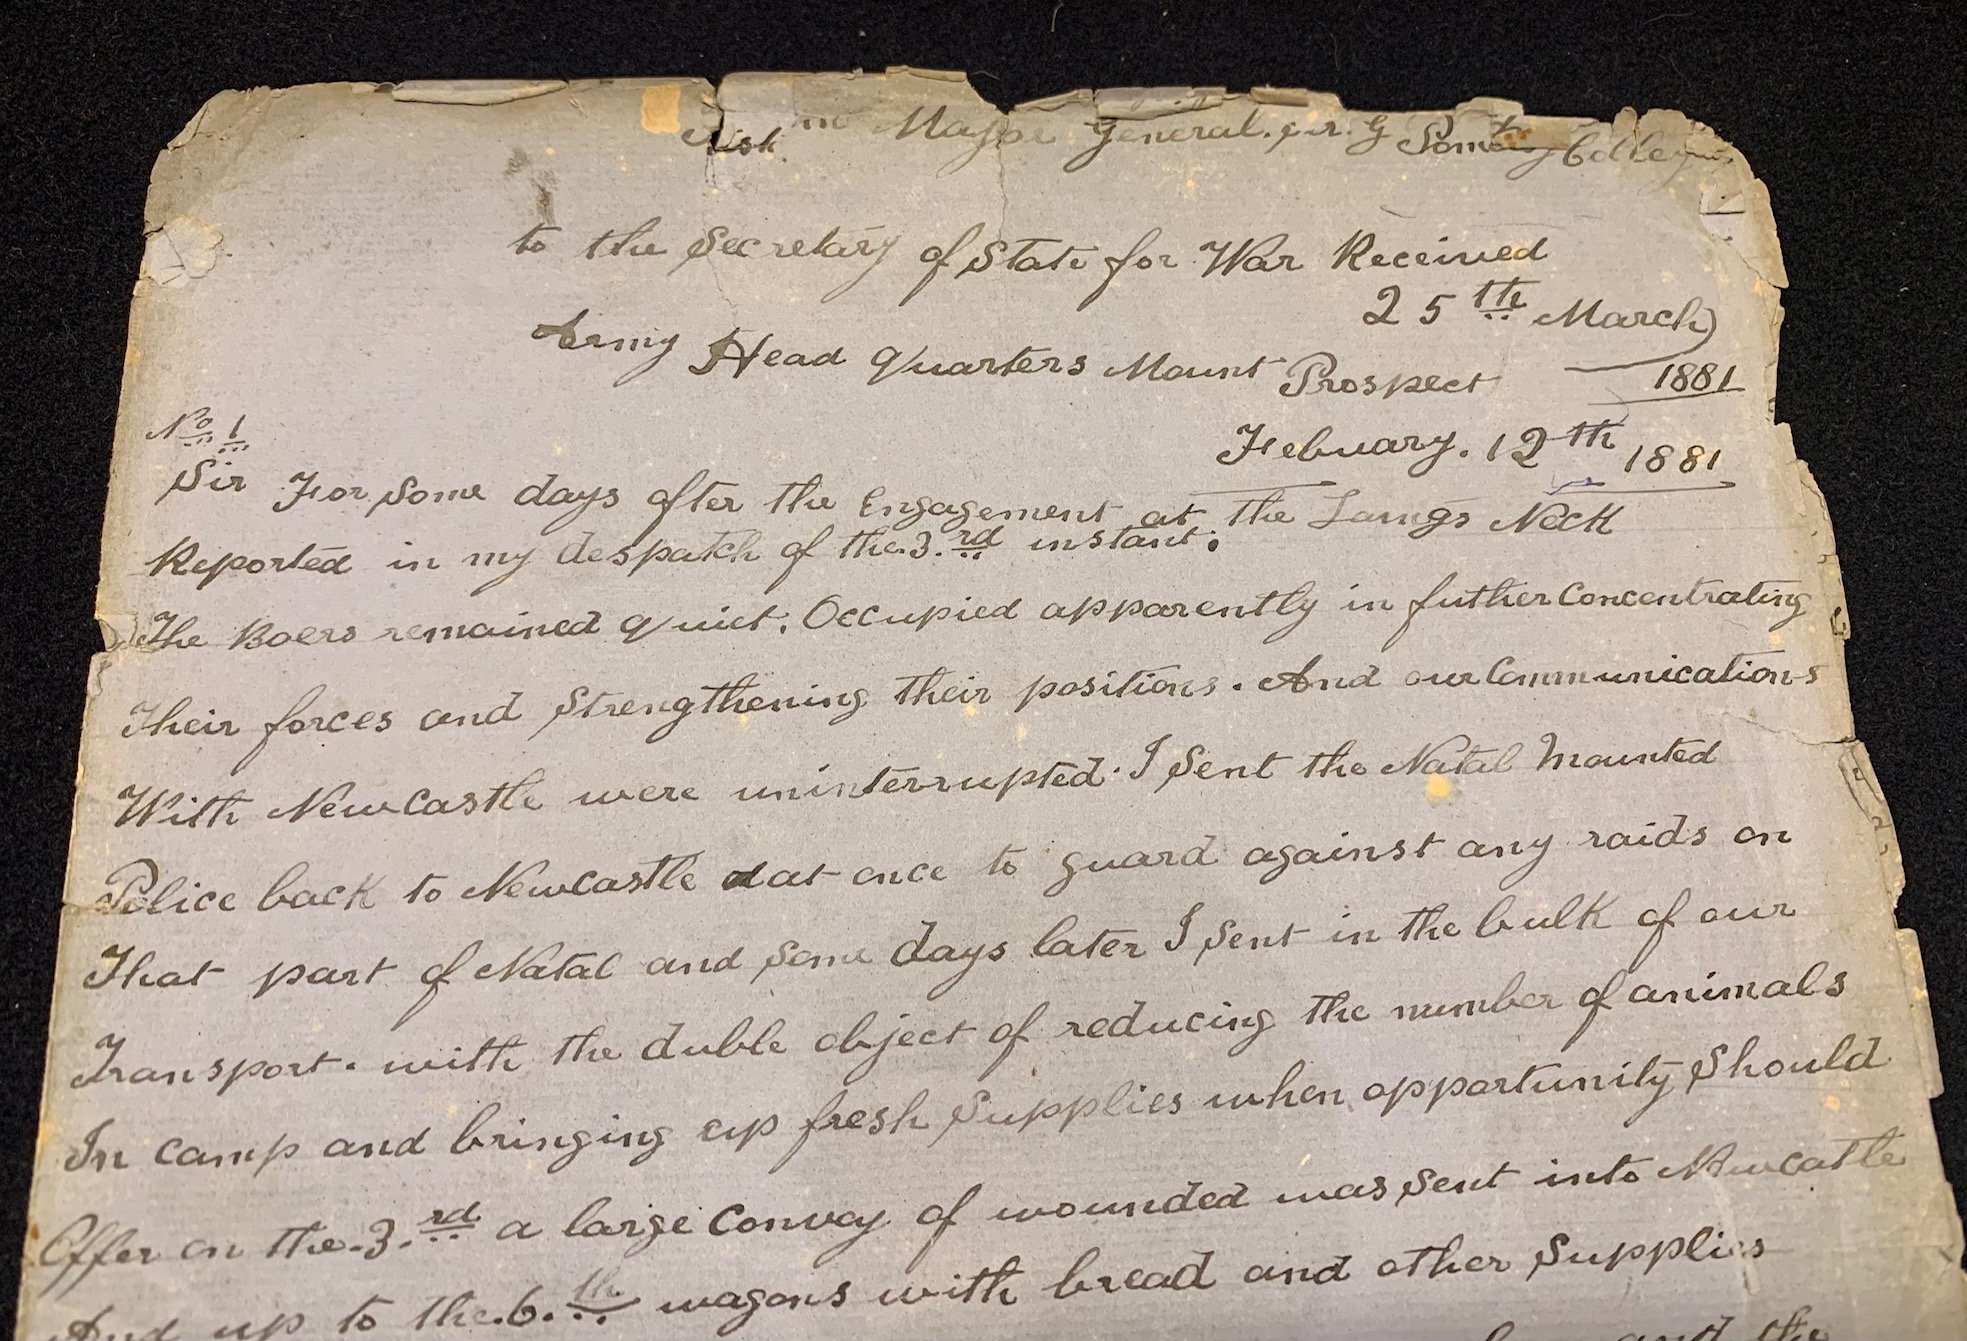 Major General. Sir. G Pomeroy Colley
to the Secretary of State for War Received
25th March)
Army Head Quarters Mount Prospect 1881
No 1
Febuary. 12th 1881
Sir For Some days after the Engagement at the Laings Neck
Reported in my despatch of the.3.rd instant.
The Boers remained quiet. Occupied apparently in futher Concentrating
Their forces and Strengthening their positions. And our Communications
With NewCastle were uninterrupted. I Sent the Natal Mounted
Police back to Newcastle at once to guard against any raids on
That part of Natal and Some days later I Sent in the bulk of our
Transport. with the duble object of reducing the number of animals
In Camp and bringing up fresh Supplies when opportunity Should
Offer on the.3.rd a large Convoy of wounded was Sent into Newcatle
And up to the.6.th wagons with bread and other Supplies
and the